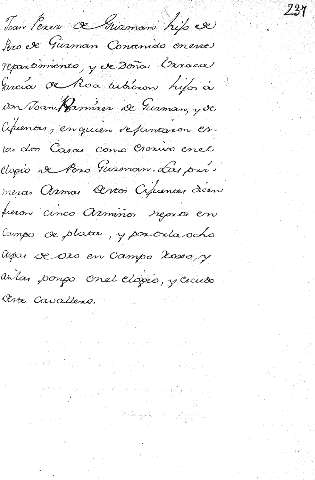 227
Juan Perez de Guzman hijo de
Pero de Guzman Contenido en este
repartimiento, y de Doña Urraca
Garcia de Roa tubieron hijos à
Don Juan Ramirez de Guzman, y de
Cifuentes, en quien se juntaron es-
tas dos Casas como escrivo en el
elogio de Pero Guzman. Las pri-
meras Armas destos Cifuentes dicen
fueron cinco Armiños negros en
Campo de plata, y por orla ocho
Aspas de oro en Campo Roxo, y
asi las pongo en el elogio, y escudo
deste Cavallero.